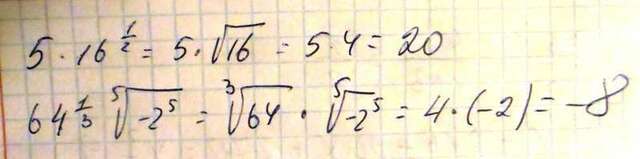 5 · 16^{1/2} = 5 · √16 = 5 · 4 = 20
64^{1/3} ⁵√(-2⁵) = ³√64 · ⁵√(-2⁵) = 4 · (-2) = -8